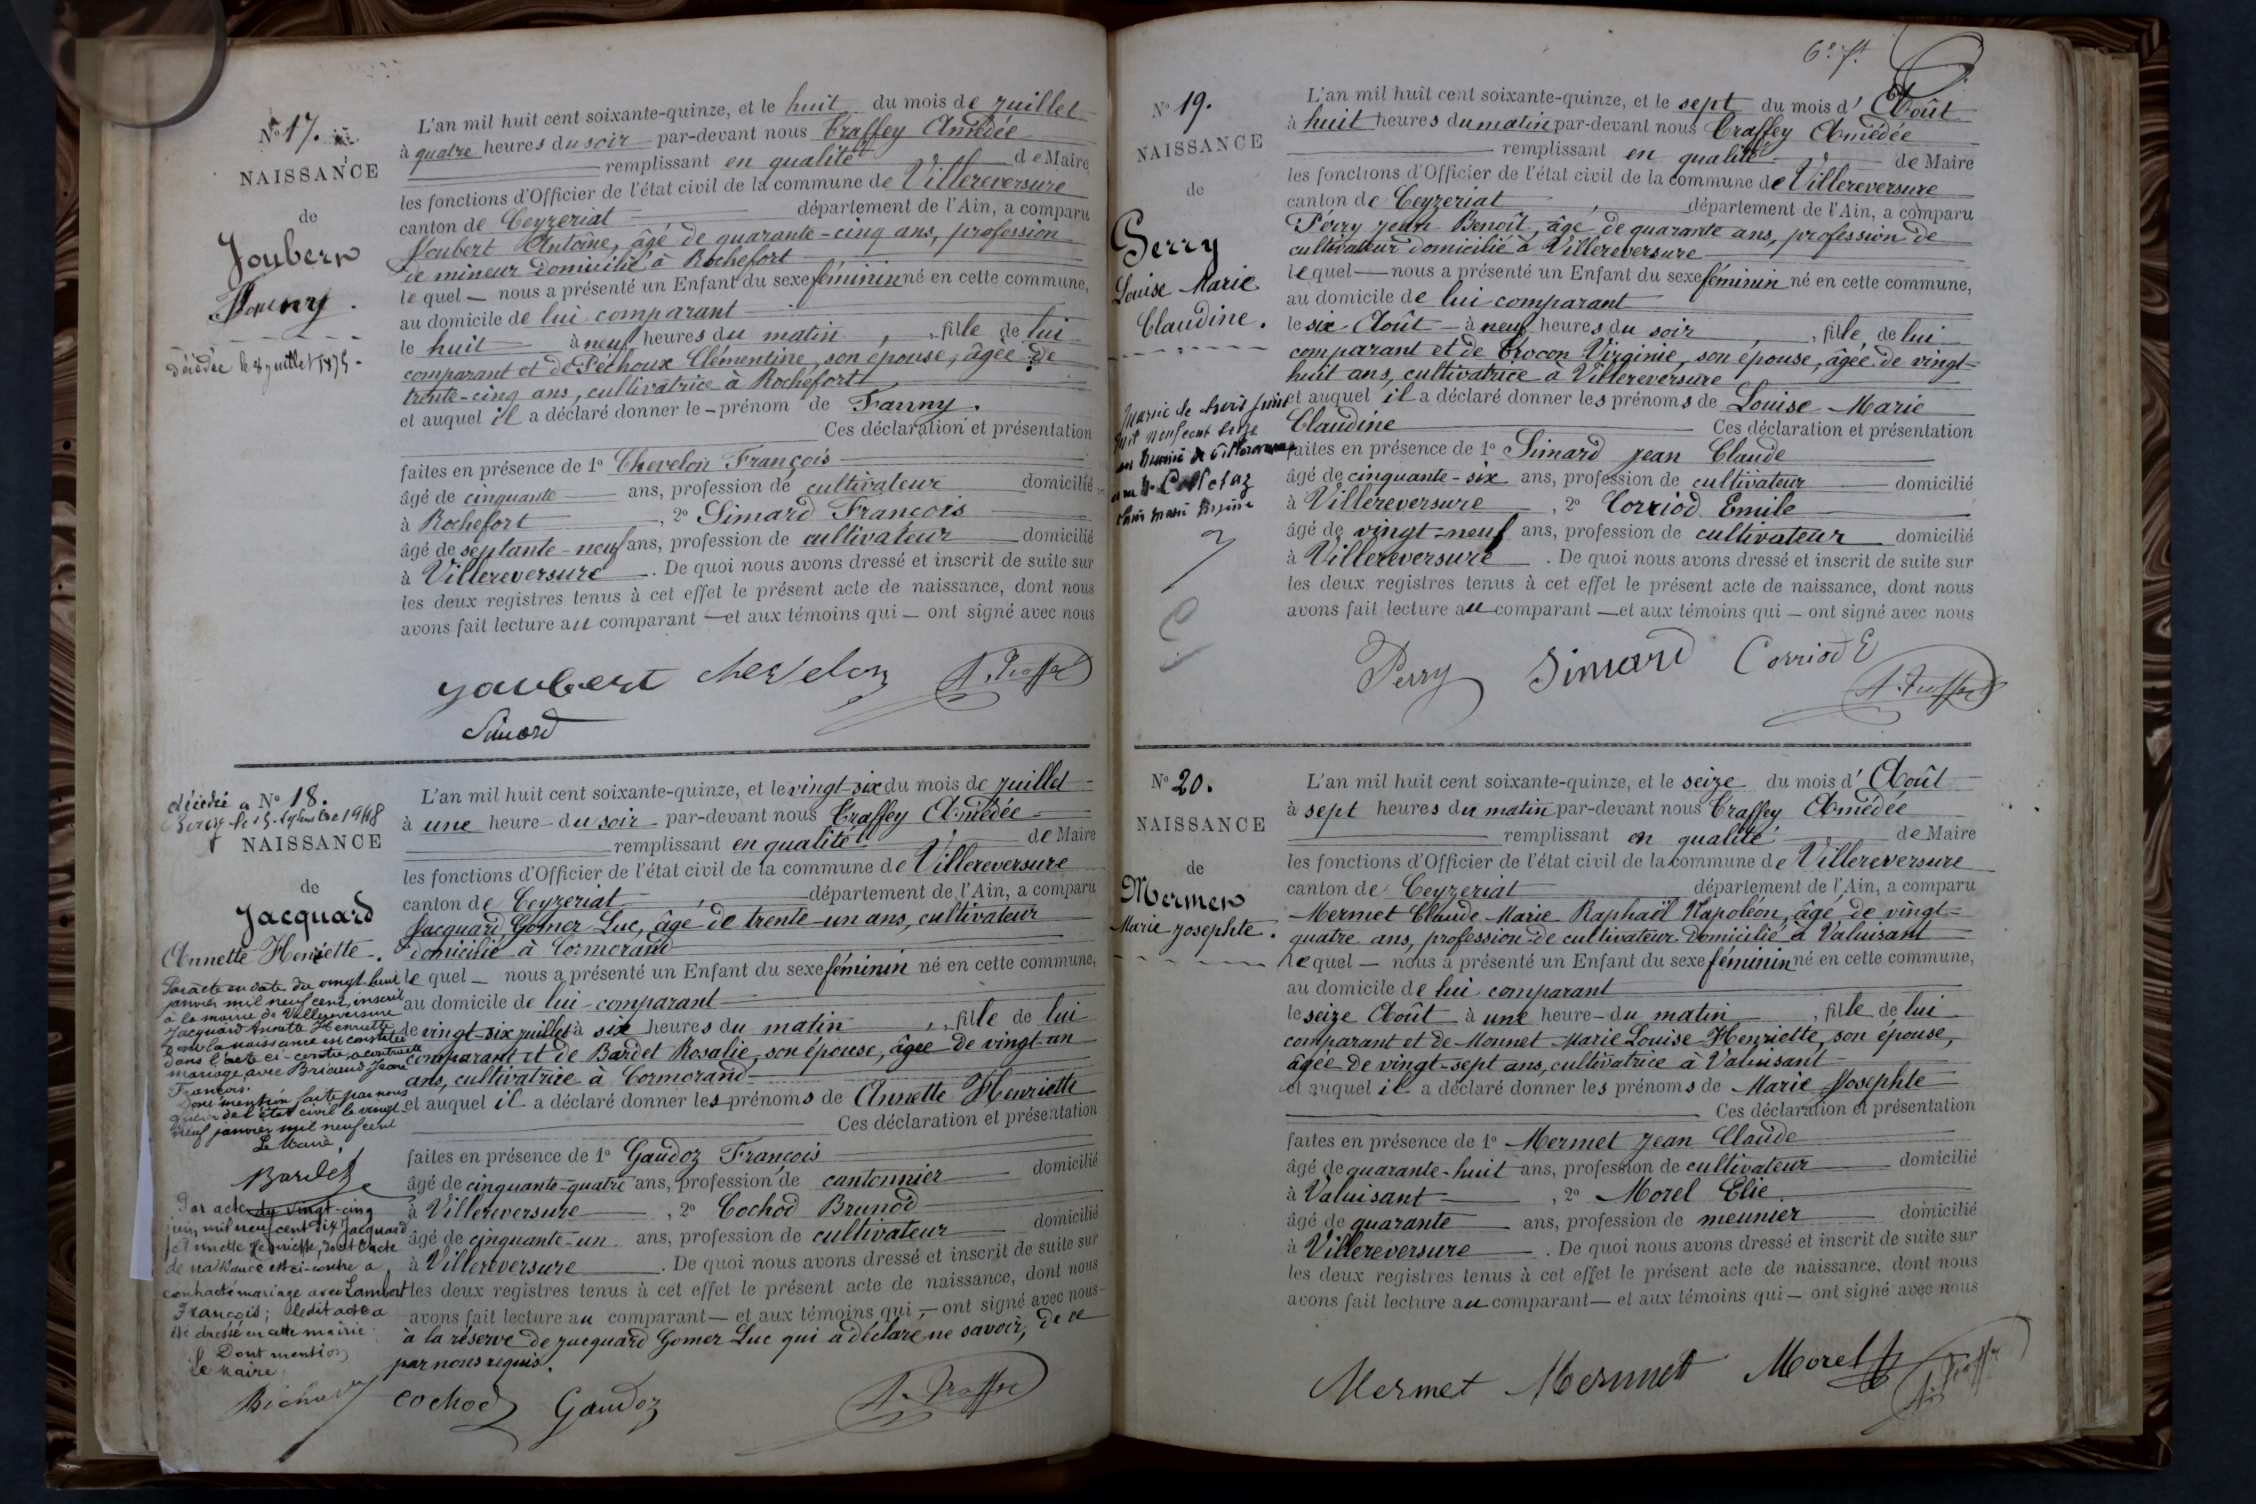 N° 17.
NAISSANCE
de
Joubert
Fanny.
décédée le 8 juillet 1875.
L'an mil huit cent soixante-quinze, et le huit du mois de juillet
à quatre heures du soir par-devant nous Traffey Amédée
remplissant en qualité de Maire
les fonctions d'Officier de l'état civil de la commune de Villereversure
canton de Ceyzeriat, département de l'Ain, a comparu
Joubert Antoine, âgé de quarante-cinq ans, profession
de mineur domicilié à Rochefort
lequel nous a présenté un Enfant du sexe féminin né en cette commune,
au domicile de lui comparant
le huit à neuf heures du matin, fille de lui
comparant et de Péchoux Clémentine, son épouse, âgée de
trente-cinq ans, cultivatrice à Rochefort
et auquel il a déclaré donner le prénom de Fanny.
Ces déclaration et présentation
faites en présence de 1° Chevelon François
âgé de cinquante ans, profession de cultivateur domicilié
à Rochefort, 2° Simard François
âgé de septante-neuf ans, profession de cultivateur domicilié
à Villereversure. De quoi nous avons dressé et inscrit de suite sur
les deux registres tenus à cet effet le présent acte de naissance, dont nous
avons fait lecture au comparant et aux témoins qui ont signé avec nous
joubert chevelon A. Traffey
Simard
décédée à
le 15 1948
N° 18.
NAISSANCE
de
Jacquard
Annette Henriette.
Par acte en date du vingt huit
janvier mil neuf cent, inscrit
à la mairie de Villereversure
Jacquard Annette Henriette
dont la naissance est constatée
dans l'acte ci-contre, a contracté
mariage avec Briaud Jean
François.
Dont mention faite par nous
officier de l'état civil le vingt
neuf janvier mil neuf cent
Le Maire
Bardet
Par acte du vingt-cinq
juin mil neuf cent dix Jacquard
Annette Henriette, dont l'acte
de naissance est ci-contre a
contracté mariage avec Lambert
François; ledit acte a
été dressé en cette mairie.
Dont mention
Le Maire
L'an mil huit cent soixante-quinze, et le vingt-six du mois de juillet
à une heure du soir par-devant nous Traffey Amédée
remplissant en qualité de Maire
les fonctions d'Officier de l'état civil de la commune de Villereversure
canton de Ceyzeriat, département de l'Ain, a comparu
Jacquard, Gomer Luc, âgé de trente-un ans, cultivateur
domicilié à Cormorand
lequel nous a présenté un Enfant du sexe féminin né en cette commune,
au domicile de lui comparant
le vingt-six juillet à six heures du matin, fille de lui
comparant et de Bardet Rosalie, son épouse, âgée de vingt-un
ans, cultivatrice à Cormorand
et auquel il a déclaré donner les prénoms de Annette Henriette
Ces déclaration et présentation
faites en présence de 1° Gaudoz François
âgé de cinquante-quatre ans, profession de cantonnier domicilié
à Villereversure, 2° Cochod Brunod
âgé de cinquante-un ans, profession de cultivateur domicilié
à Villereversure. De quoi nous avons dressé et inscrit de suite sur
les deux registres tenus à cet effet le présent acte de naissance, dont nous
avons fait lecture au comparant et aux témoins qui, ont signé avec nous
à la réserve de jacquard Gomer Luc qui a déclaré ne savoir, de ce
par nous requis.
cochod Gaudoz A. Traffey
6e ft.
N° 19.
NAISSANCE
de
Perry
Louise Marie
Claudine.
Marié le trois juin
mil neuf cent seize
en mairie de Villereversure
L'an mil huit cent soixante-quinze, et le sept du mois d'Août
à huit heures du matin par-devant nous Traffey Amédée
remplissant en qualité de Maire
les fonctions d'Officier de l'état civil de la commune de Villereversure
canton de Ceyzeriat, département de l'Ain, a comparu
Perry jean Benoît, âgé de quarante ans, profession de
cultivateur domicilié à Villereversure
lequel nous a présenté un Enfant du sexe féminin né en cette commune,
au domicile de lui comparant
le six Août à neuf heures du soir, fille de lui
comparant et de Trocon Virginie, son épouse, âgée de vingt-
huit ans, cultivatrice à Villereversure
et auquel il a déclaré donner les prénoms de Louise Marie
Claudine Ces déclaration et présentation
faites en présence de 1° Simard jean Claude
âgé de cinquante-six ans, profession de cultivateur domicilié
à Villereversure, 2° Corriod Emile
âgé de vingt-neuf ans, profession de cultivateur domicilié
à Villereversure. De quoi nous avons dressé et inscrit de suite sur
les deux registres tenus à cet effet le présent acte de naissance, dont nous
avons fait lecture au comparant et aux témoins qui ont signé avec nous
Perry Simard Corriod E A. Traffey
N° 20.
NAISSANCE
de
Mermet
Marie josephte.
L'an mil huit cent soixante-quinze, et le seize du mois d'Août
à sept heures du matin par-devant nous Traffey Amédée
remplissant en qualité de Maire
les fonctions d'Officier de l'état civil de la commune de Villereversure
canton de Ceyzeriat département de l'Ain, a comparu
Mermet Claude Marie Raphaël Napoléon, âgé de vingt-
quatre ans, profession de cultivateur domicilié à Valuisant
lequel nous a présenté un Enfant du sexe féminin né en cette commune,
au domicile de lui comparant
le seize Août à une heure du matin, fille de lui
comparant et de Monnet Marie Louise Henriette, son épouse,
âgée de vingt-sept ans, cultivatrice à Valuisant
et auquel il a déclaré donner les prénoms de Marie Josephte
Ces déclaration et présentation
faites en présence de 1° Mermet jean Claude
âgé de quarante-huit ans, profession de cultivateur domicilié
à Valuisant, 2° Morel Elie
âgé de quarante ans, profession de meunier domicilié
à Villereversure. De quoi nous avons dressé et inscrit de suite sur
les deux registres tenus à cet effet le présent acte de naissance, dont nous
avons fait lecture au comparant et aux témoins qui ont signé avec nous
Mermet Mermet Morel A. Traffey